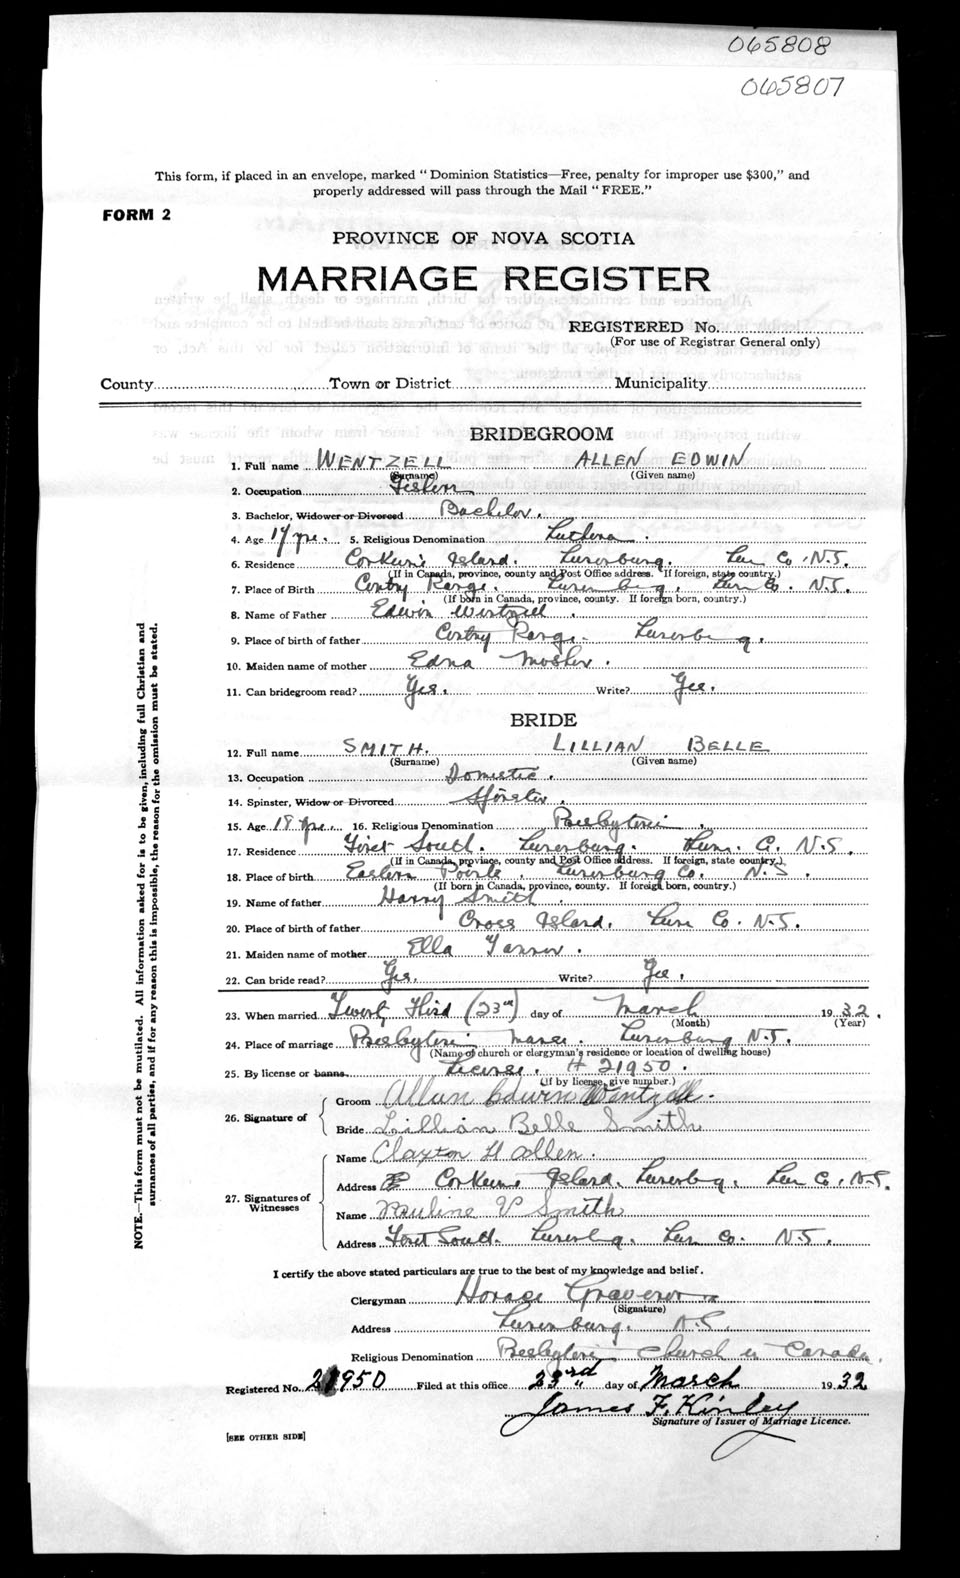 065808
065807
This form, if placed in an envelope, marked "Dominion Statistics—Free, penalty for improper use $300," and
properly addressed will pass through the Mail "FREE."
FORM 2
PROVINCE OF NOVA SCOTIA
MARRIAGE REGISTER
REGISTERED No.
(For use of Registrar General only)
County Town or District Municipality
BRIDEGROOM
1. Full name WENTZELL ALLEN EDWIN
(Surname) (Given name)
2. Occupation
3. Bachelor, Widower or Divorced Bachelor.
4. Age yrs. 5. Religious Denomination Lutheran.
6. Residence Corkum's Island. Lunenburg. Lun Co. N.S.
(If in Canada, province, county and Post Office address. If foreign, state country.)
7. Place of Birth Lunenburg, Lun Co. N.S.
(If born in Canada, province, county. If foreign born, country.)
8. Name of Father Edwin Wentzell
9. Place of birth of father Lunenburg.
10. Maiden name of mother Edna Mosher.
11. Can bridegroom read? Yes. Write? Yes.
BRIDE
12. Full name SMITH. LILLIAN BELLE
(Surname) (Given name)
13. Occupation Domestic.
14. Spinster, Widow or Divorced Spinster.
15. Age 18 yrs. 16. Religious Denomination Presbyterian.
17. Residence First South. Lunenburg. Lun. Co. N.S.
(If in Canada, province, county and Post Office address. If foreign, state country.)
18. Place of birth Eastern Points, Lunenburg Co. N.S.
(If born in Canada, province, county. If foreign born, country.)
19. Name of father Harry Smith.
20. Place of birth of father Cross Island. Lun Co. N.S.
21. Maiden name of mother Ella Tanner.
22. Can bride read? Yes. Write? Yes.
23. When married Twenty Third (23rd) day of March 1932.
(Month) (Year)
24. Place of marriage Presbyterian Manse. Lunenburg N.S.
(Name of church or clergyman's residence or location of dwelling house)
25. By license or banns. License. # 21950.
(If by license, give number.)
26. Signature of
Groom Allan Edwin Wentzell.
Bride Lillian Belle Smith
27. Signatures of Witnesses
Name Clayton H Allen.
Address Corkum's Island. Lunenburg. Lun Co. N.S.
Name Pauline V Smith
Address First South. Lunenburg. Lun Co. N.S.
I certify the above stated particulars are true to the best of my knowledge and belief.
Clergyman Horace
(Signature)
Address Lunenburg. N.S.
Religious Denomination Presbyterian Church in Canada.
Registered No. 21950 Filed at this office 23rd day of March 1932
James F. Kinley
Signature of Issuer of Marriage Licence.
[SEE OTHER SIDE]
NOTE.—This form must not be mutilated. All information asked for is to be given, including full Christian and
surnames of all parties, and if for any reason this is impossible, the reason for the omission must be stated.